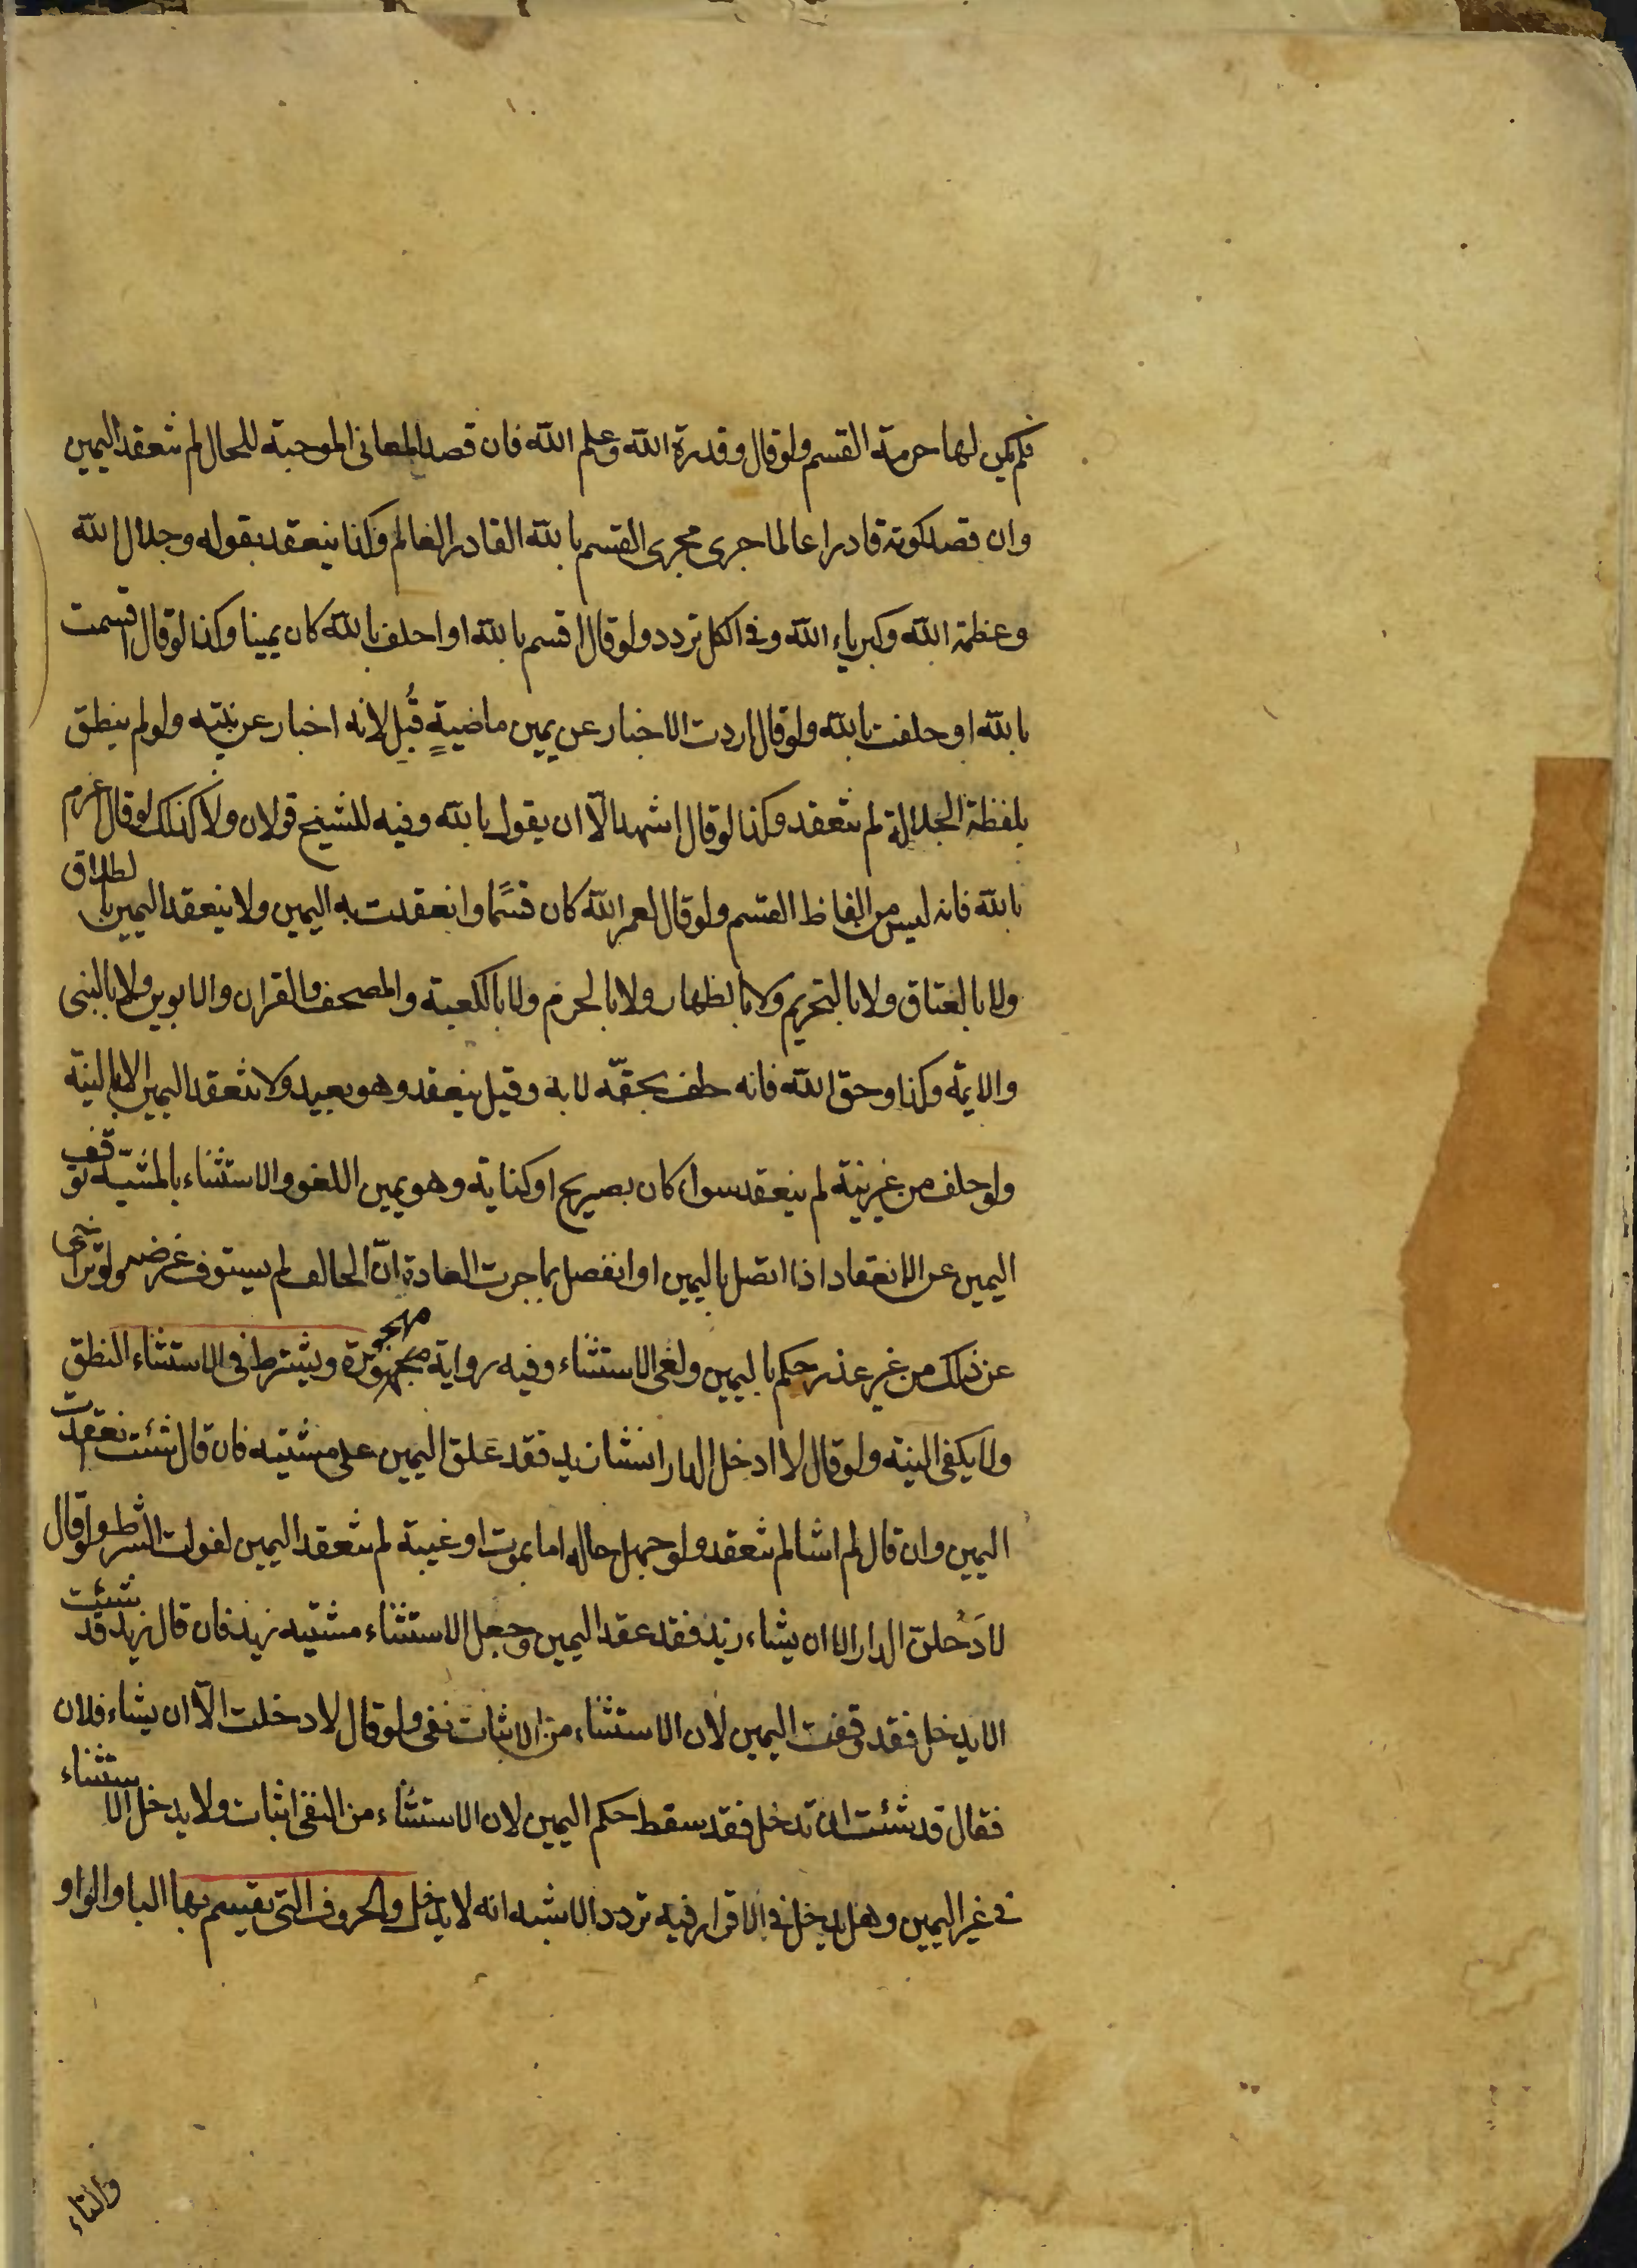 فلم يكن لها حرمة القسم ولو قال وقدرة الله وعلم الله فان قصد المعانى الموجبة للحال لم تنعقد اليمين
وان قصد كونه قادرا عالما جرى مجرى القسم بالله القادر العالم وكذا ينعقد بقوله وجلال الله
وعظمة الله وكبرياء الله وفى الكل تردد ولو قال اقسم بالله او احلف بالله كان يمينا وكذا لو قال اقسمت
بالله او حلفت بالله ولو قال اردت الاخبار عن يمين ماضيةٍ قُبِل لانه اخبار عن نيته ولو لم ينطق
بلفظة الجلالة لم تنعقد وكذا لو قال اشهد الّا ان يقول بالله وفيه للشيخ قولان ولا كذلك لو قال اعزم
بالله فانه ليس من الفاظ القسم ولو قال لعمر الله كان قسمًا وانعقدت به اليمين ولا ينعقد اليمين بالطلاق
ولا بالعتاق ولا بالتحريم ولا بالظهار ولا بالحرم ولا بالكعبة والمصحف والقران والابوين ولا بالنبى
والايمة وكذا وحق الله فانه حلف بحقّه لا به وقيل ينعقد وهو بعيد ولا تنعقد اليمين الا بالنية
ولو حلف من غير نية لم ينعقد سوا كان بصريح او كناية وهو يمين اللغو والاستثناء بالمشيّة توقف
اليمين عن الانعقاد اذا اتصل باليمين او انفصل بما جرت العادة انّ الحالف لم يستوف غرضه ولو تراخى
عن ذلك من غير عذر حكم باليمين ولغى الاستثناء وفيه رواية مهجورة ويشترط فى الاستثناء النطق
ولا يكفى النية ولو قال لا ادخل الدار انشا زيد فقد علق اليمين على مشيته فان قال شئت انعقدت
اليمين وان قال لم اشا لم تنعقد ولو جهل حاله اما بموت او غيبة لم تنعقد اليمين لفوات الشرط ولو قال
لادَخُلنّ الدار الا ان يشاء زيد فقد عقد اليمين وجعل الاستثناء مشيته زيد فان قال زيد قد شئت
الا يدخل فقد وقفت اليمين لان الاستثناء من الاثبات نفى ولو قال لا دخلت الّا ان يشاء فلان
فقال قد شئت ان تدخل فقد سقط حكم اليمين لان الاستثناء من النفى اثبات ولا يدخل الاستثناء
فى غير اليمين وهل يدخل فى الاقرار فيه تردد الاشبه انه لا يدخل والحروف التى يقسم بها البا والواو
والتاء